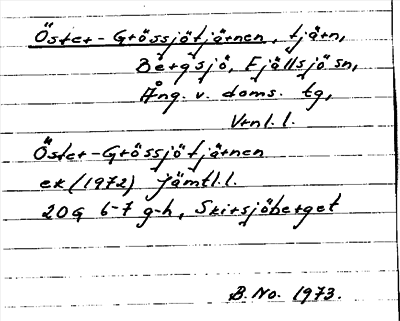 Öster-Grössjötjärnen, tjärn,
Bergsjö, Fjällsjö sn,
Ång. v. doms. tg,
Vrnl. l.
Öster-Grössjötjärnen
ek (1972) Jämtl. l.
20G 6-7 g-h, Skirsjöberget
B. No. 1973.